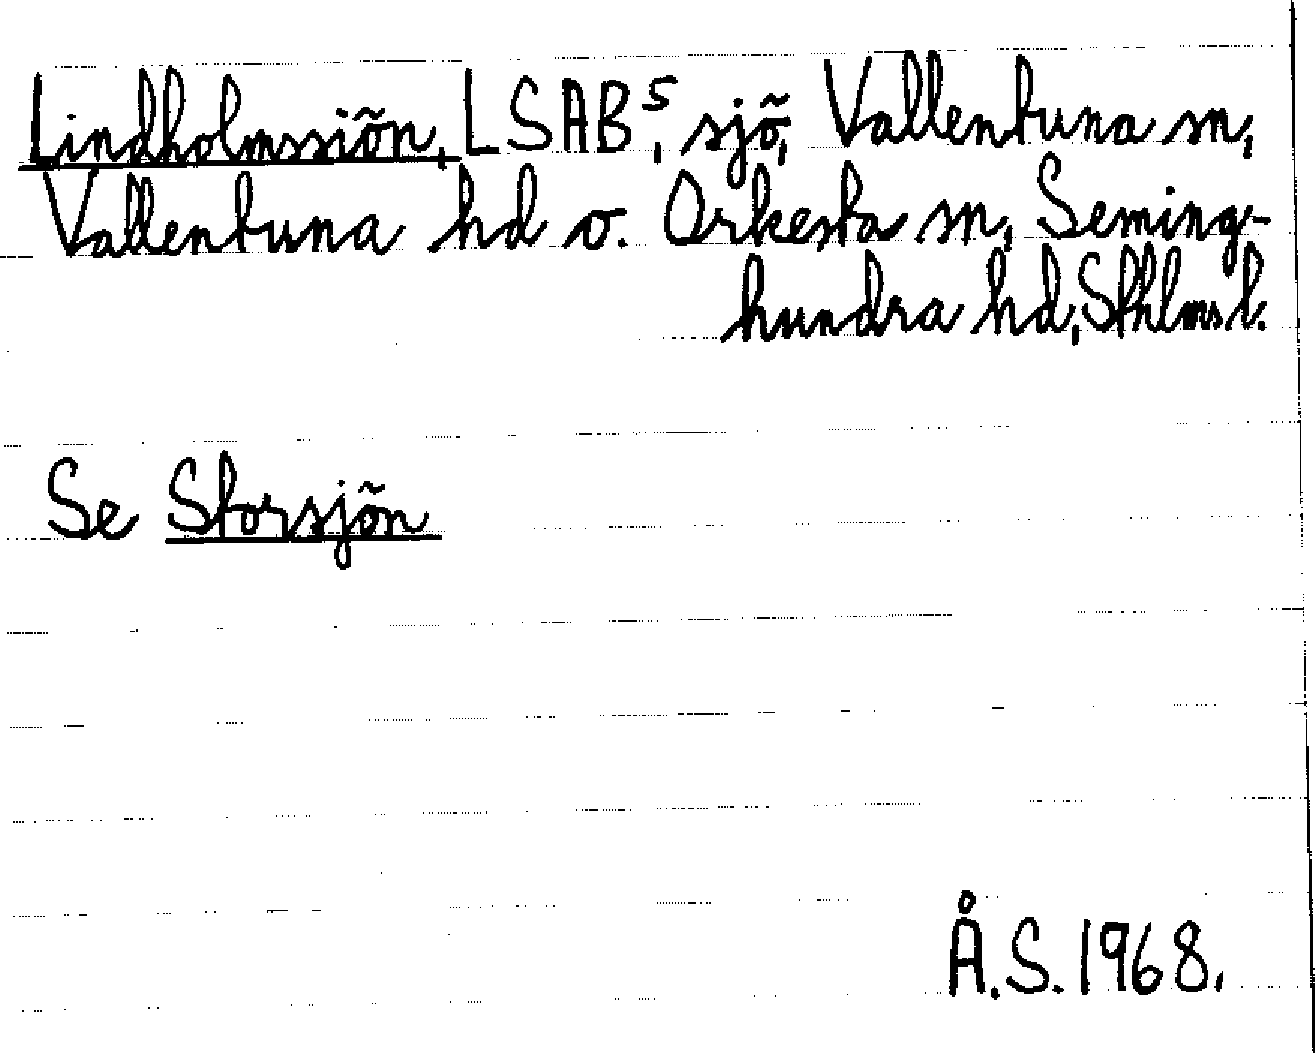 Lindholmssiön, LSAB⁵, sjö, Vallentuna sn,
Vallentuna hd o. Orkesta sn, Seming-
hundra hd, Sthlms l.
Se Storsjön
Å.S. 1968.